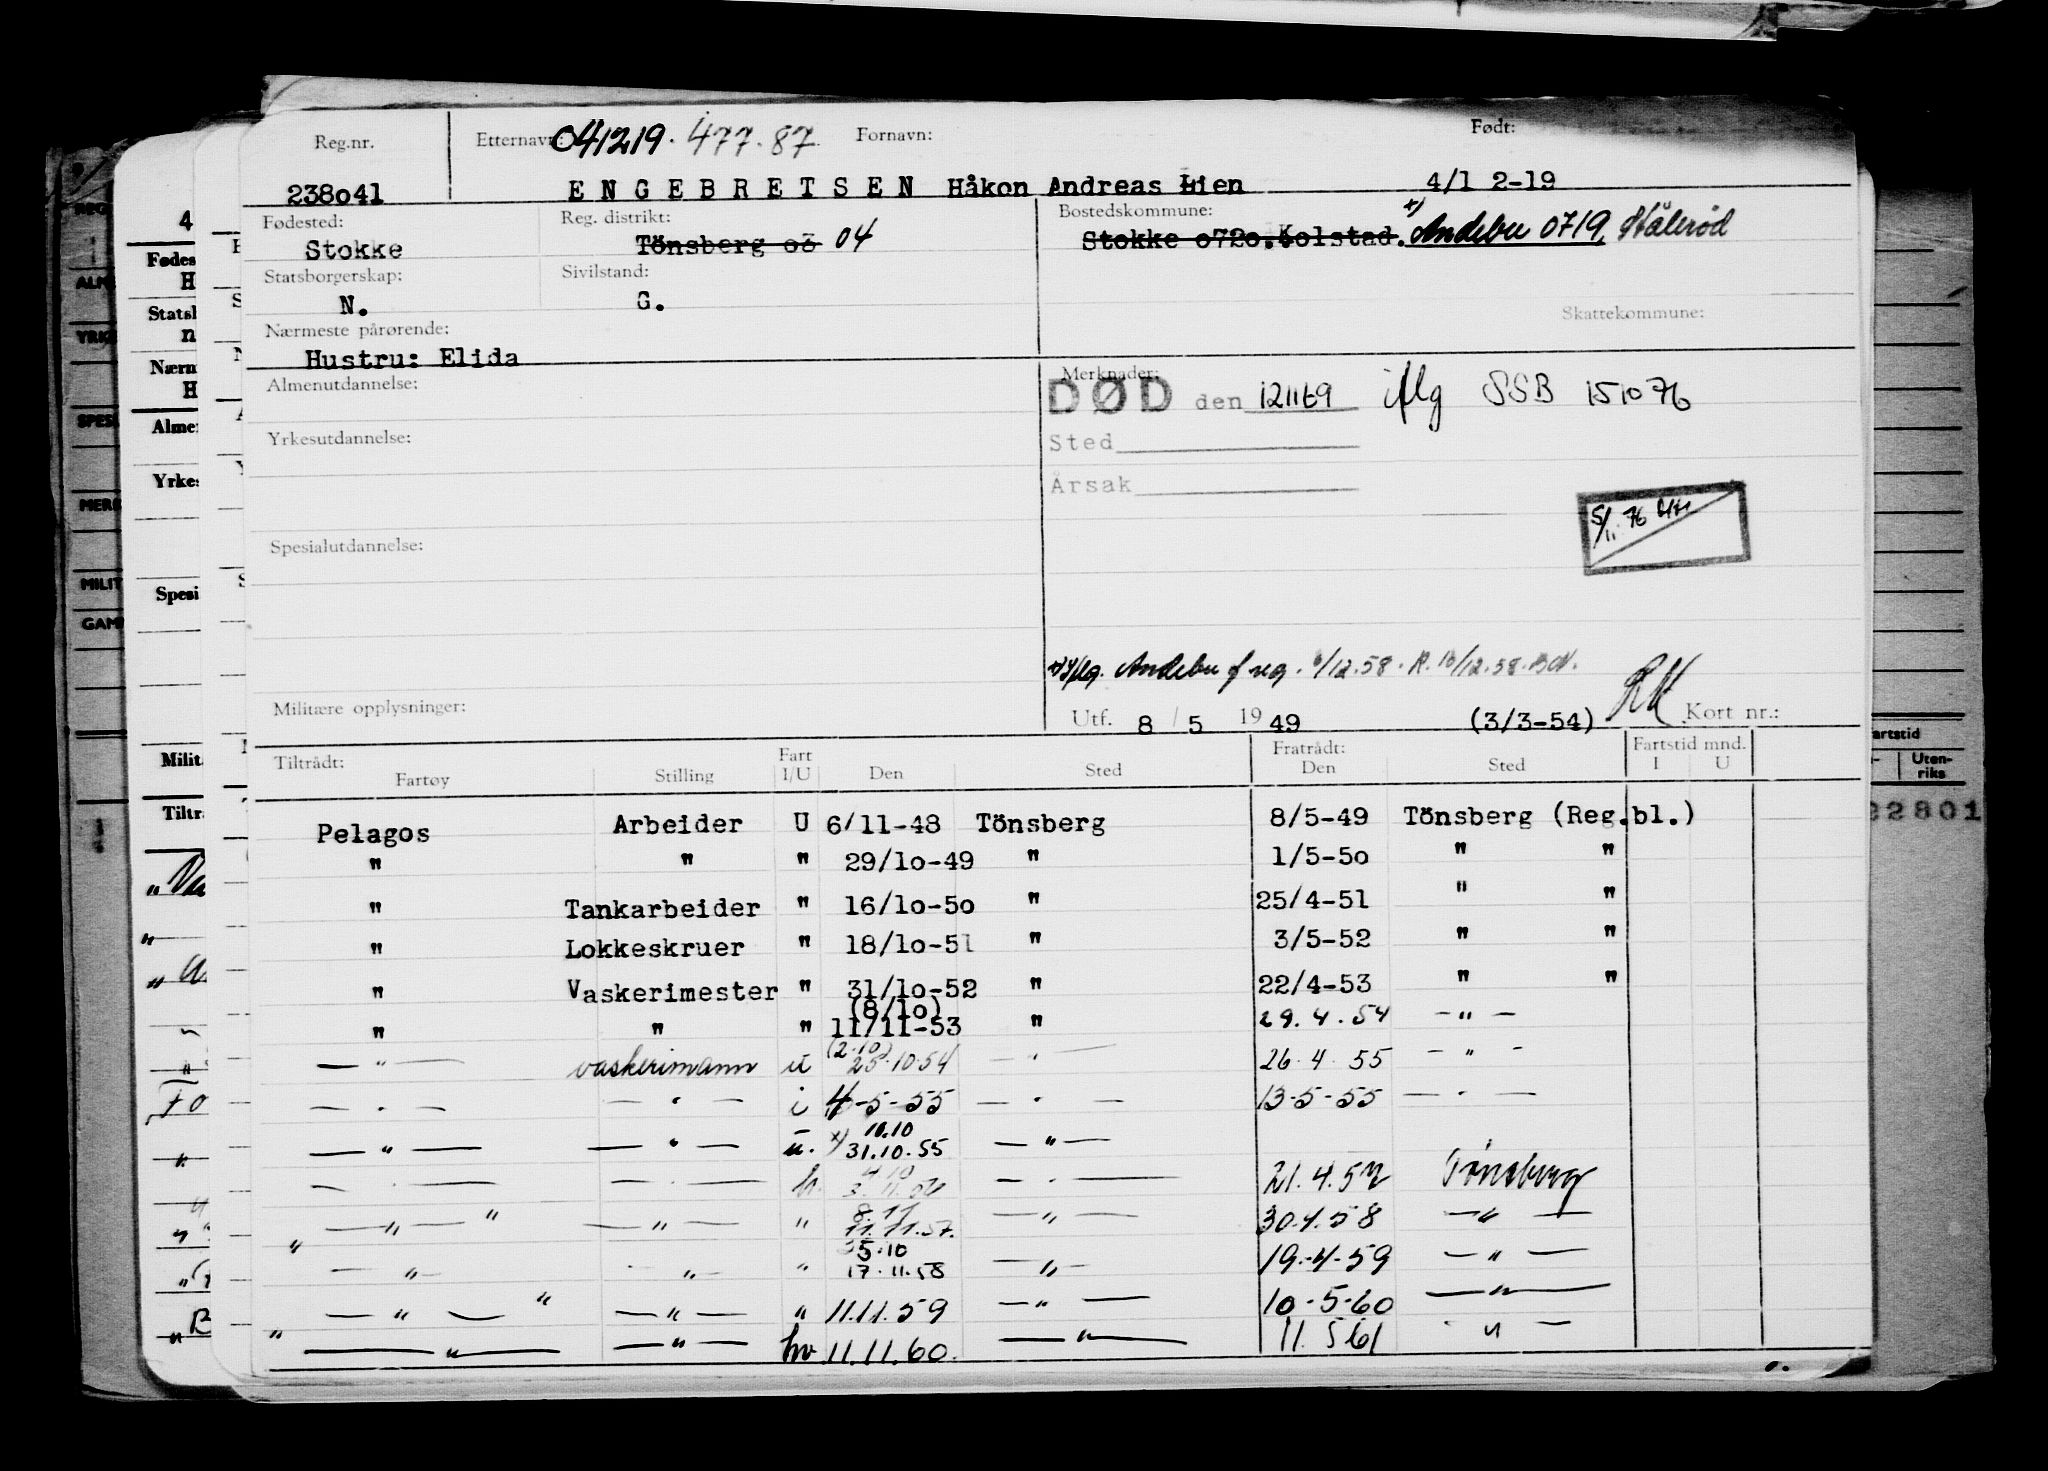 Reg.nr. Etternavn: 041219.477.87 Fornavn: Født:
238o41 ENGEBRETSEN Håkon Andreas Lien 4/1 2-19
Fødested: Reg. distrikt: Bostedskommune:
Stokke Tönsberg o3 04 Stokke o72o. Kolstad. x) Andebu 0719
Statsborgerskap: Sivilstand:
N. G.
Nærmeste pårørende: Skattekommune:
Hustru: Elida
Almenutdannelse: Merknader:
DØD den 121169 iflg SSB 151076
Yrkesutdannelse: Sted
Årsak
5/11.76
Spesialutdannelse:
x) Iflg. Andebu f reg. 6/12.58. R. 10/12.58.
Militære opplysninger: Utf. 8/5 1949 (3/3-54) RK Kort nr.:
Tiltrådt: Fart Fratrådt: Fartstid mnd.
Fartøy Stilling I/U Den Sted Den Sted I U
Pelagos Arbeider U 6/11-48 Tönsberg 8/5-49 Tönsberg (Reg.bl.)
" " " 29/1o-49 " 1/5-5o " "
" Tankarbeider " 16/1o-5o " 25/4-51 " "
" Lokkeskruer " 18/1o-51 " 3/5-52 " "
" Vaskerimester " 31/1o-52 " 22/4-53 " "
(8/1o)
" " " 11/11-53 " 29.4.54 - " -
(2.10)
— " — vaskerimann u 25.10.54 — " — 26.4.55 - " -
— " — — " — i 4-5-55 — " — 13-5-55 — " —
10.10
— " — — " — u. x) 31.10.55 — " —
4.10
— " — — " — — " — 21.4.57 Tønsberg
8.11
" — " — " — " — " 11.11.57. — " — 30.4.58 — " —
5.10
— " — " " 17.11.58 — " — 19.-4-59 — " —
" — " — " — " — " 11.11.59 — " — 10-5-60 — " —
— " — — " — hv 11.11.60. — " — 11.5 61 " —
4
Fødes
H
Statsl
n
Nærm
H
Alme
Yrkes
Spesi
Milit
Tiltr
ALM
YRK
SPESI
MERK
MILIT
GAM
artstid
Uten-
riks
22801